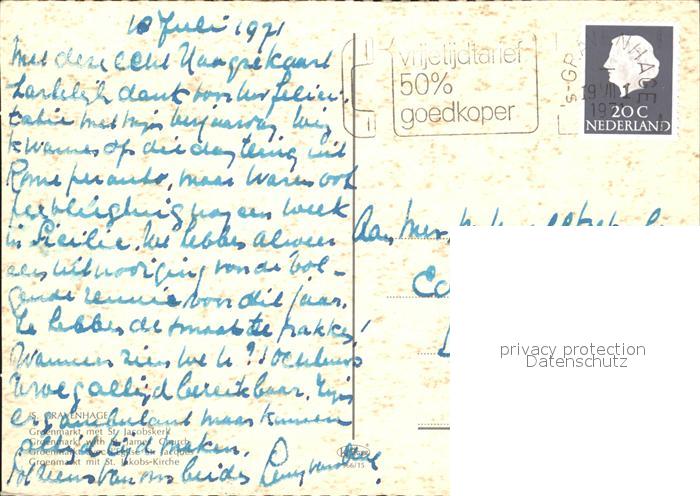 18 Juli 1971
Met deze echt Haagse kaart
hartelijk dank voor Uw felici-
tatie met mijn verjaardag. Wij
kwamen op die dag terug uit
Rome per auto, maar waren ook
nog een week
in Sicilië. We hebben alweer
een uitnodiging van de vol-
gende reunie voor dit jaar.
Ze hebben de smaak te pakken!
Wanneer zien we U?
U weg altijd bereikbaar. Zijn
erg ambulant maar kunnen
altijd tijd maken.
Tot ziens van ons beiden
vrijetijdtarief
50%
goedkoper
's-GRAVENHAGE
19 VII
197
20 C
NEDERLAND
Aan
privacy protection
Datenschutz
'S-GRAVENHAGE
Groenmarkt met St. Jacobskerk
Groenmarkt with St. James Church
Groenmarkt avec l'Eglise St. Jacques
Groenmarkt mit St. Jakobs-Kirche